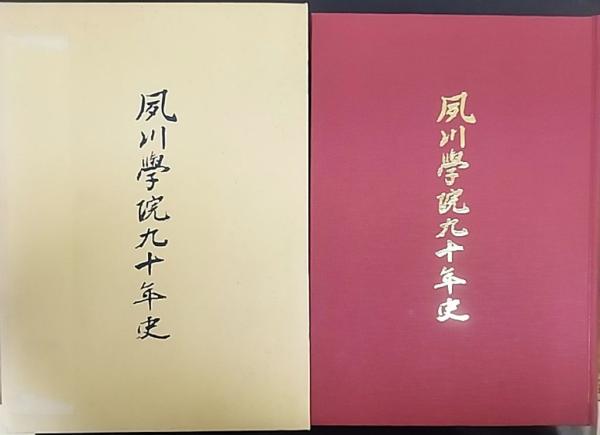 夙川學院九十年史
夙川學院九十年史